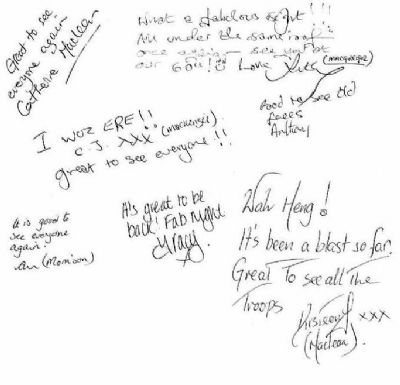 Great to see
everyone again
Catherine Maclean
What a fabulous night!!!
All under the same roof
once again - see you at
our 60th! Love
good to see old
faces
Anthony
I woz ERE!!
C.J. xxx (mackenzie)
great to see everyone!!
It is good to
see everyone
again.
(Morrison)
It's great to be
back! Fab night
Tracy.
Wah Heng!
It's been a blast so far.
Great To see all The
Troops
xxx
(Maclean).